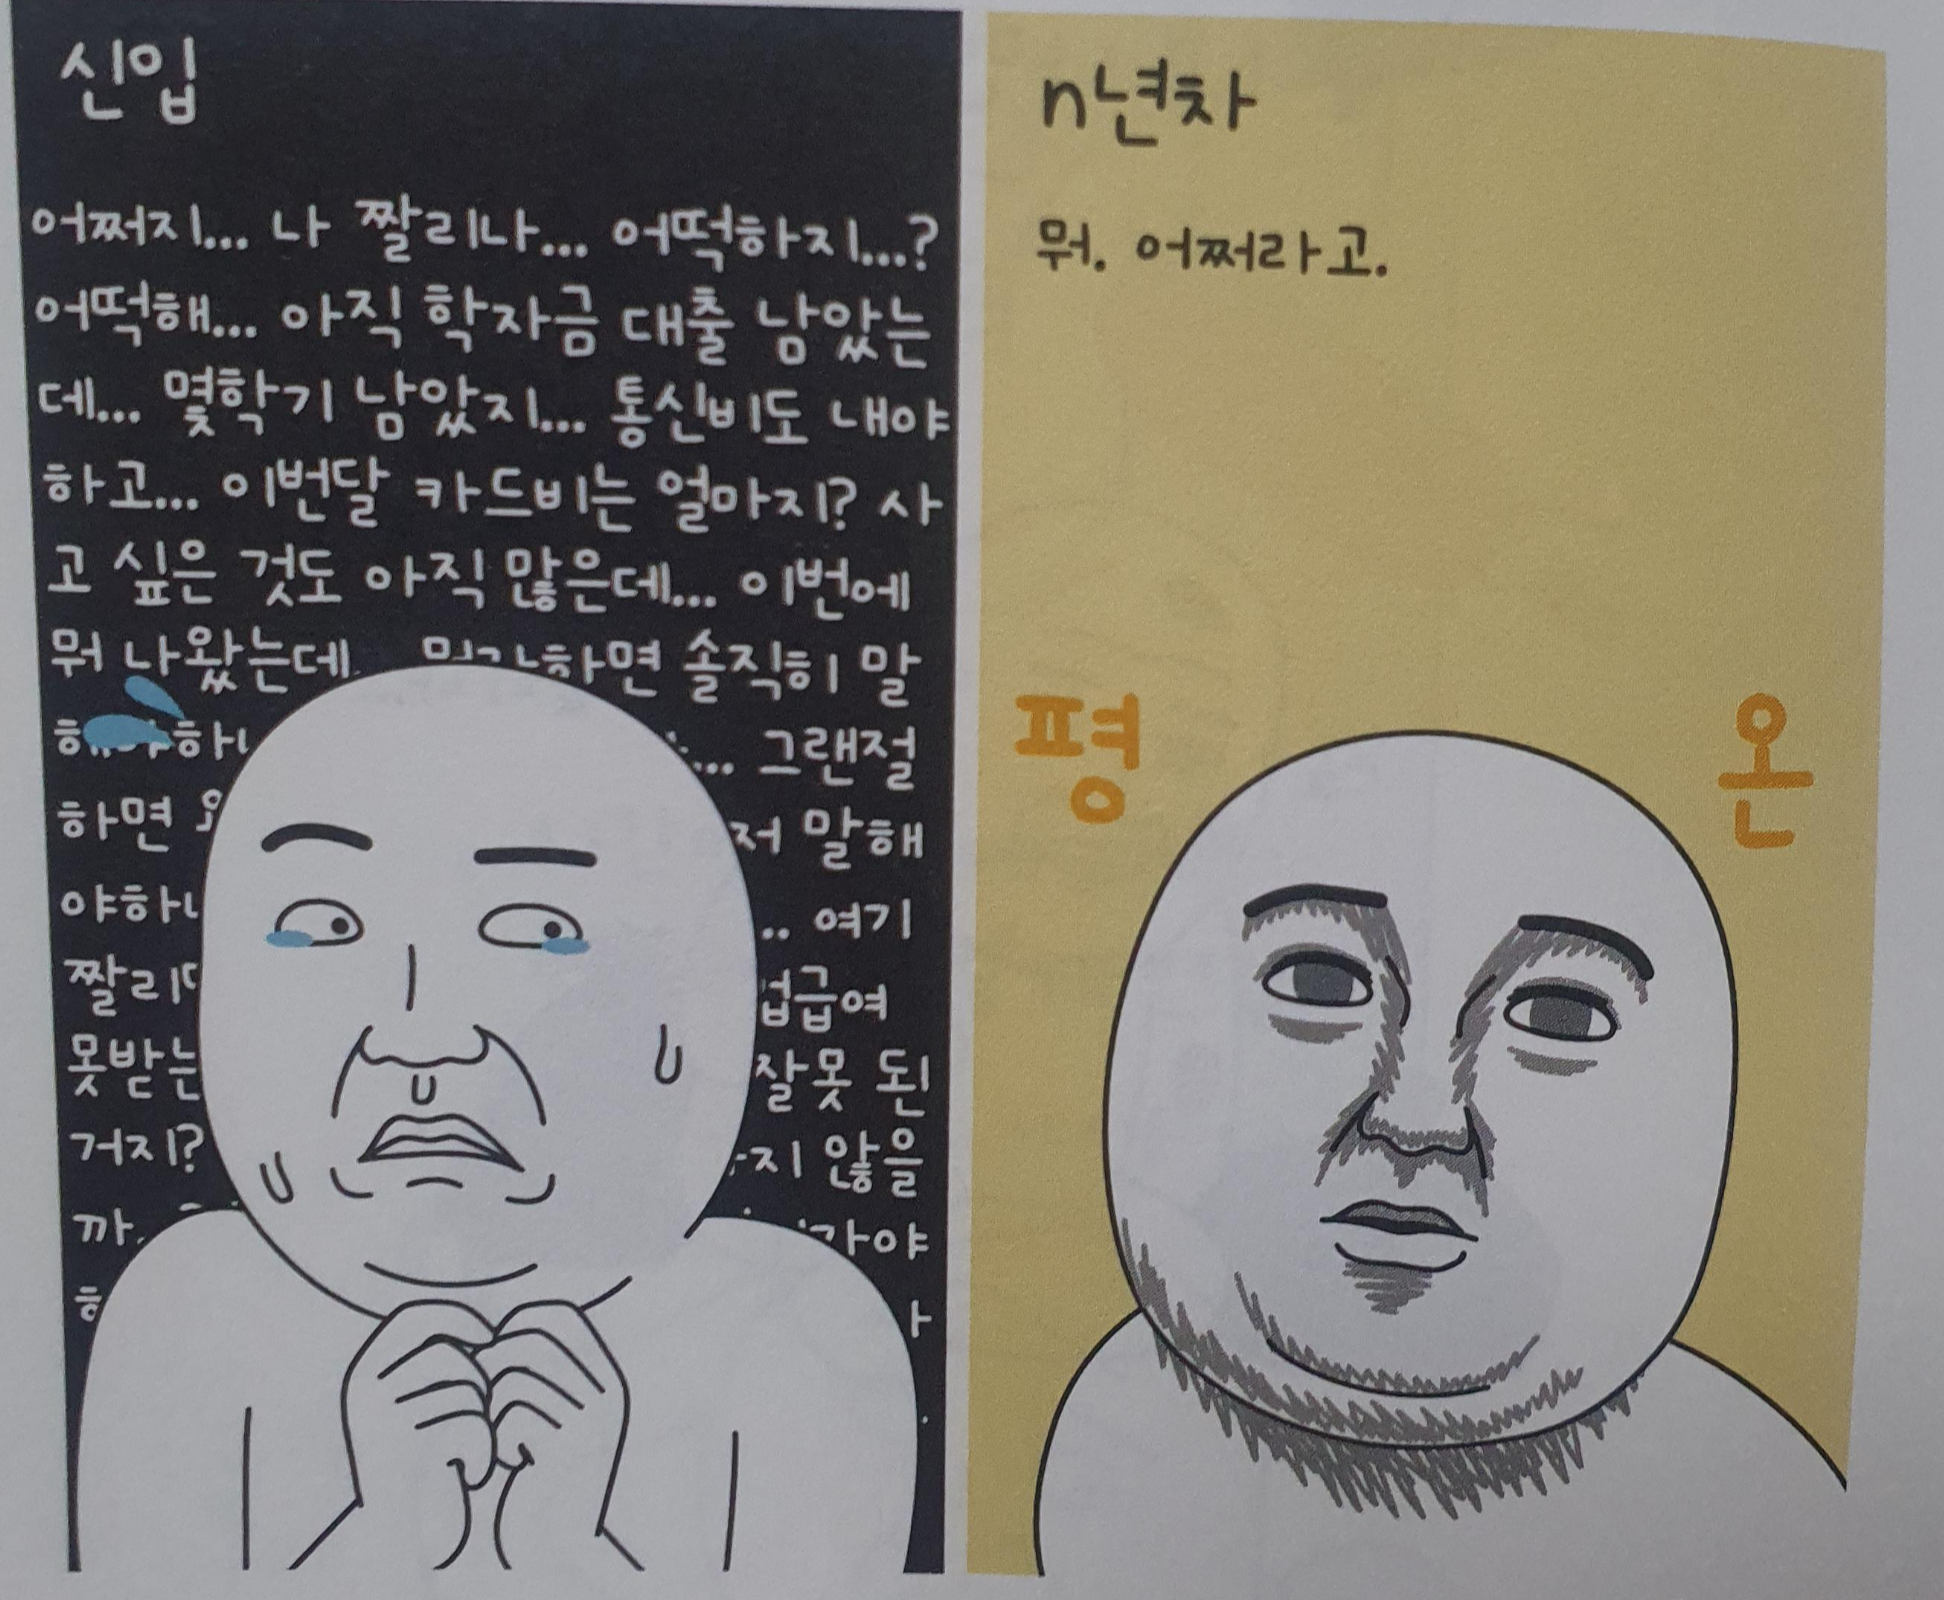 신입
어쩌지... 나 짤리나... 어떡하지...?
어떡해... 아직 학자금 대출 남았는
데... 몇학기 남았지... 통신비도 내야
하고... 이번달 카드비는 얼마지? 사
고 싶은 것도 아직 많은데... 이번에
뭐 나왔는데 솔직히 말
그랜절
하면 말해
여기
못받는 잘못 된
거지? 않을
까.
n년차
뭐. 어쩌라고.
평 온